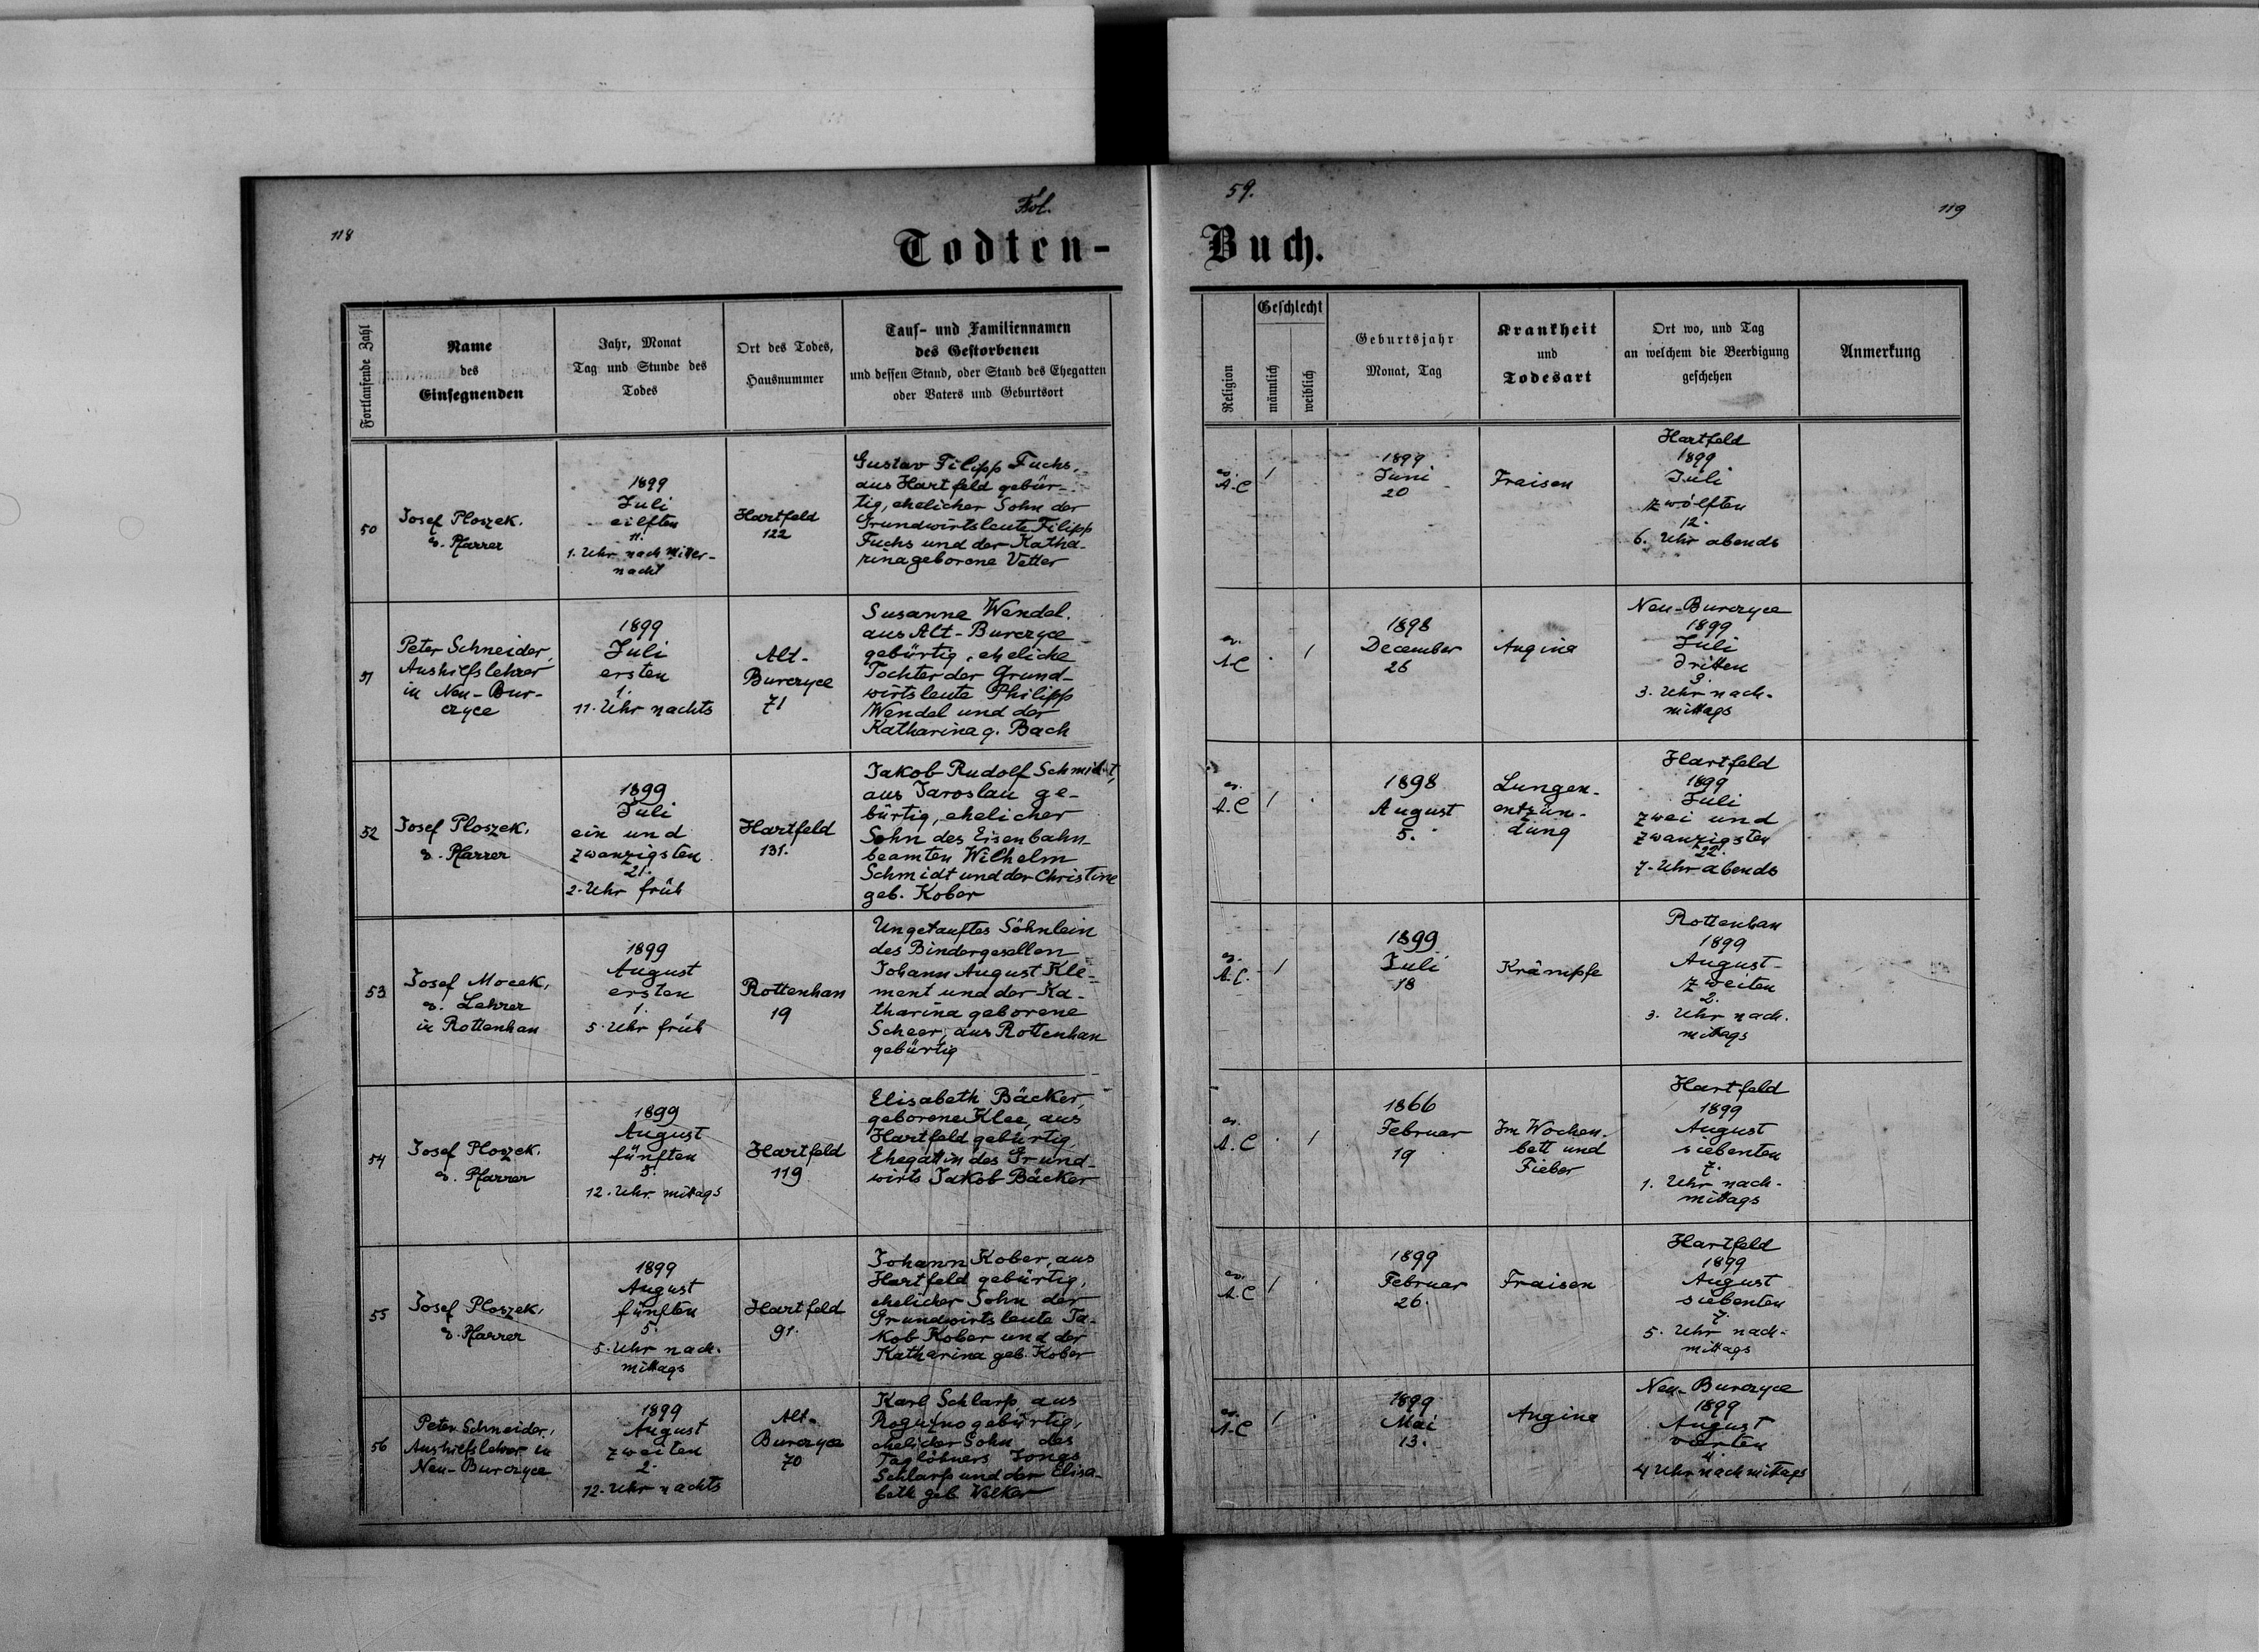 118
Fol.
59.
119
Todten-
Buch.
Fortlaufende Zahl
Name
des
Einsegnenden
Jahr, Monat
Tag und Stunde des
Todes
Ort des Todes,
Hausnummer
Tauf- und Familiennamen
des Gestorbenen
und dessen Stand, oder Stand des Ehegatten
oder Vaters und Geburtsort
Religion
Geschlecht
männlich
weiblich
Geburtsjahr
Monat, Tag
Krankheit
und
Todesart
Ort wo, und Tag
an welchem die Beerdigung
geschehen
Anmerkung
50
Josef Ploszek.
ev. Pfarrer
1899
Juli
eilften
11.
1. Uhr nach Mitter-
nacht
Hartfeld
122
Gustav Filipp Fuchs,
aus Hartfeld gebür-
tig, ehelicher Sohn der
Grundwirtsleute Filipp
Fuchs und der Katha-
rina geborene Vetter
ev.
A.C
1
1899
Juni
20
Fraisen
Hartfeld
1899
Juli
zwölften
12.
6. Uhr abends
51
Peter Schneider,
Aushilfslehrer
in Neu-Bur-
czyce
1899
Juli
ersten
1.
11. Uhr nachts
Alt-
Burczyce
71
Susanne Wendel.
aus Alt-Burczyce
gebürtig, eheliche
Tochter der Grund-
wirtsleute Philipp
Wendel und der
Katharina g. Bach
ev.
A.C
1
1898
December
26
Angina
Neu-Burczyce
1899
Juli
dritten
3.
3. Uhr nach-
mittags
52
Josef Ploszek,
ev. Pfarrer
1899
Juli
ein und
zwanzigsten
21.
2. Uhr früh
Hartfeld
131.
Jakob Rudolf Schmidt,
aus Jaroslau ge-
bürtig, ehelicher
Sohn des Eisenbahn-
beamten Wilhelm
Schmidt und der Christine
geb. Kober
ev.
A.C
1
1898
August
5.
Lungen-
entzün-
dung
Hartfeld
1899
Juli
zwei und
zwanzigsten
22.
7. Uhr abends
53
Josef Mocek,
ev. Lehrer
in Rottenhan
1899
August
ersten
1.
5. Uhr früh
Rottenhan
19
Ungetauftes Söhnlein
des Bindergesellen
Johann August Kle-
ment und der Ka-
tharina geborene
Scheer, aus Rottenhan
gebürtig
ev.
A.C.
1
1899
Juli
18
Krämpfe
Rottenhan
1899
August
zweiten
2.
3. Uhr nach-
mittags
54
Josef Ploszek.
ev. Pfarrer
1899
August
fünften
5.
12. Uhr mittags
Hartfeld
119
Elisabeth Bäcker,
geborene Klee, aus
Hartfeld gebürtig,
Ehegattin des Grund-
wirts Jakob Bäcker
ev.
A.C
1
1866
Februar
19
Im Wochen-
bett und
Fieber
Hartfeld
1899
August
siebenten
7.
1. Uhr nach-
mittags
55
Josef Ploszek,
ev. Pfarrer
1899
August
fünften
5.
5. Uhr nach-
mittags
Hartfeld
91.
Johann Kober, aus
Hartfeld gebürtig,
ehelicher Sohn der
Grundwirtsleute Ja-
kob Kober und der
Katharina geb. Kober
ev.
A.C
1
1899
Februar
26.
Fraisen
Hartfeld
1899
August
siebenten
7.
5. Uhr nach-
mittags
56
Peter Schneider,
Aushilfslehrer in
Neu-Burczyce
1899
August
zweiten
2.
12. Uhr nachts
Alt-
Burczyce
70
Karl Schlarp, aus
gebürtig,
ehelicher Sohn des
Taglöhners
Schlarp und der Elisa-
beth geb. Welker
ev.
A.C
1
1899
Mai
13.
Angina
Neu-Burczyce
1899
August
vierten
4.
4 Uhr nachmittags